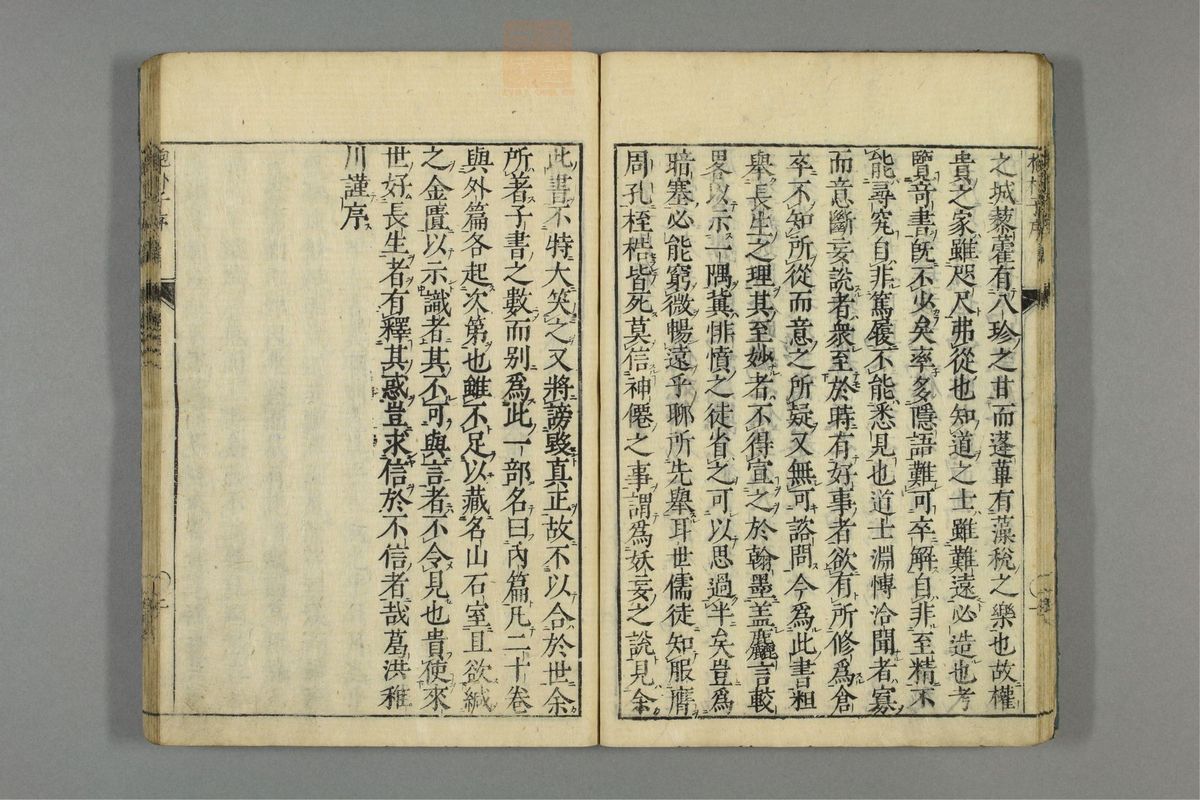 之城藜藿有八珍之甘而蓬蓽有藻梲之樂也故權
貴之家雖咫尺弗從也知道之士雖難遠必造也考
覽竒書既不少矣率多隱語難可卒解自非至精不
能尋究自非篤履不能悉見也道士淵愽洽聞者寡
而意斷妄說者衆至於時有好事者欲有所修爲倉
卒不知所從而意之所疑又無可諮問今爲此書粗
舉長生之理其至妙者不得宣之於翰墨盖麤言較
畧以示一隅冀悱憤之徒省之可以思過半矣豈爲
暗塞必能窮微暢遠乎聊所先舉耳世儒徒知服膺
周孔桎梏皆死莫信神僊之事謂爲妖妄之說見余
此書不特大笑之又將謗毀真正故不以合於世余
所著子書之數而别爲此一部名曰內篇凡二十卷
與外篇各起次第也雖不足以藏名山石室且欲緘
之金匱以示識者其不可與言者不令見也貴使來
世好長生者有釋其惑豈求信於不信者哉葛洪稚
川謹序